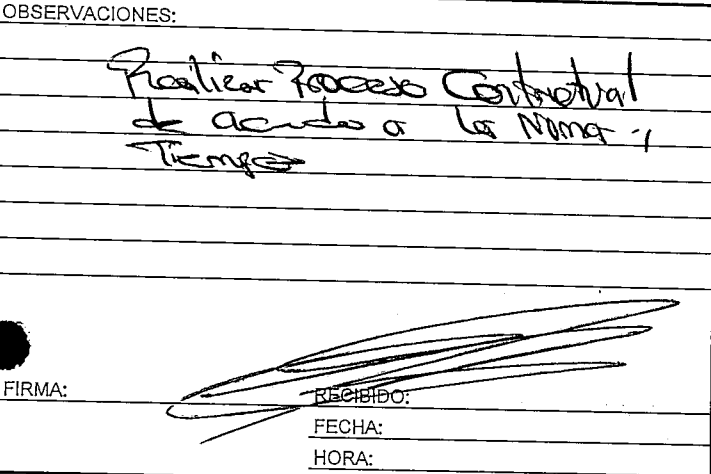 OBSERVACIONES:
Realizar Proceso Contractual
de acuerdo a la Norma y
Tiempos
FIRMA:
RECIBIDO:
FECHA:
HORA: